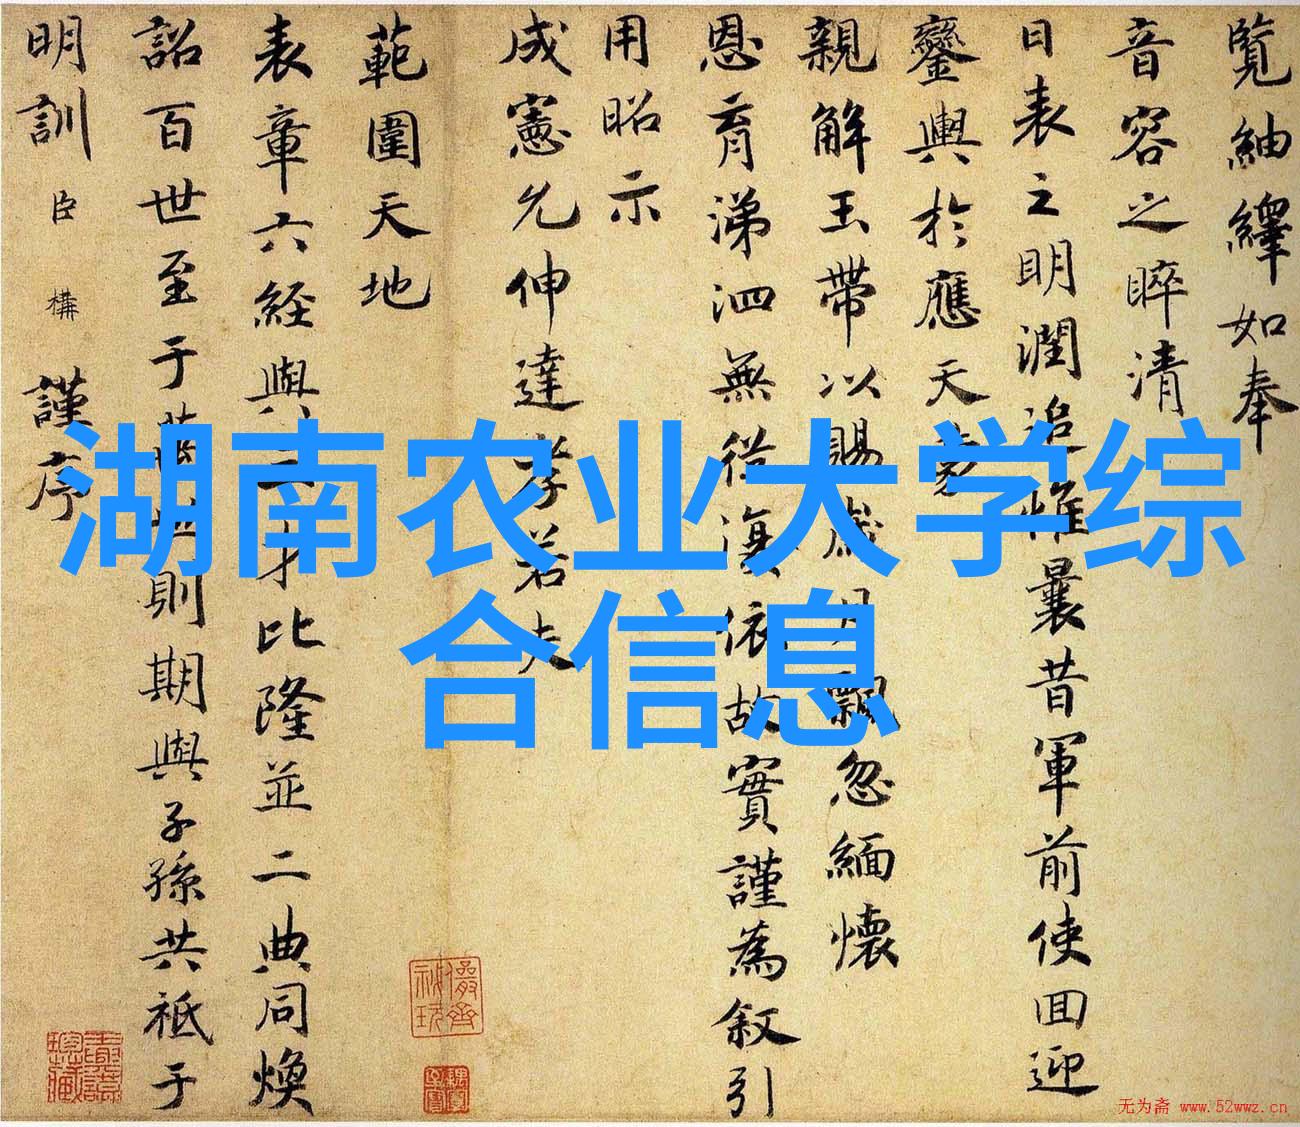 覽紬繹如奉
音容之晬清
日表之明潤追惟曩昔軍前使回迎
鑾輿於應天
親解玉帶以賜歲月飄忽緬懷
恩育涕泗無從湨依故實謹為叙引
用昭示
成憲允伸達孝若夫
範圍天地
表章六經與二才比隆並二典同煥
詔百世至于萬世則期與子孫共祗于
明訓臣構謹序
湖南农业大学综
合信息
无为斋 www.52wwz.cn